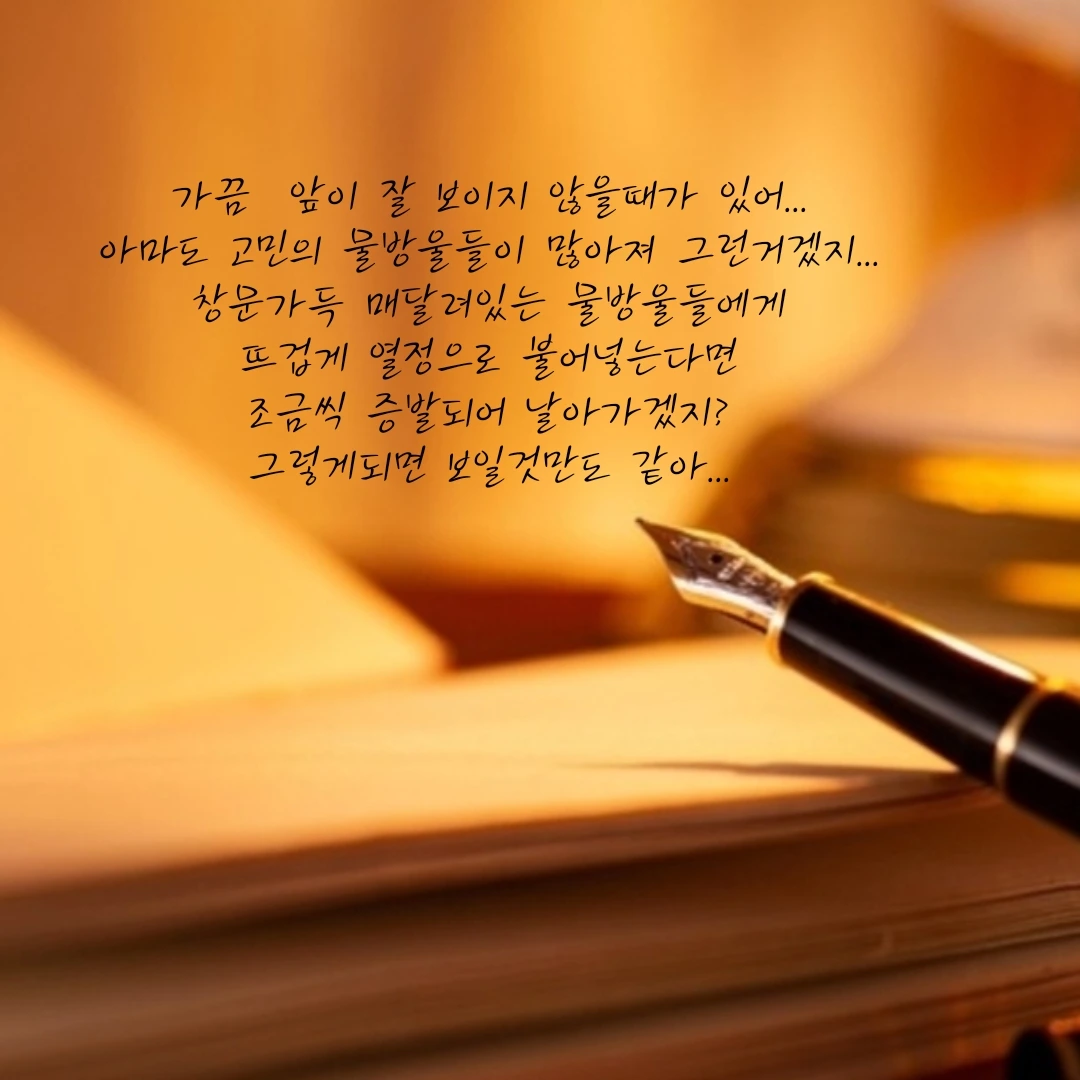 가끔  앞이 잘 보이지 않을때가 있어...
아마도 고민의 물방울들이 많아져 그런거겠지...
창문가득 매달려있는 물방울들에게
뜨겁게 열정으로 불어넣는다면
조금씩 증발되어 날아가겠지?
그렇게되면 보일것만도 같아...